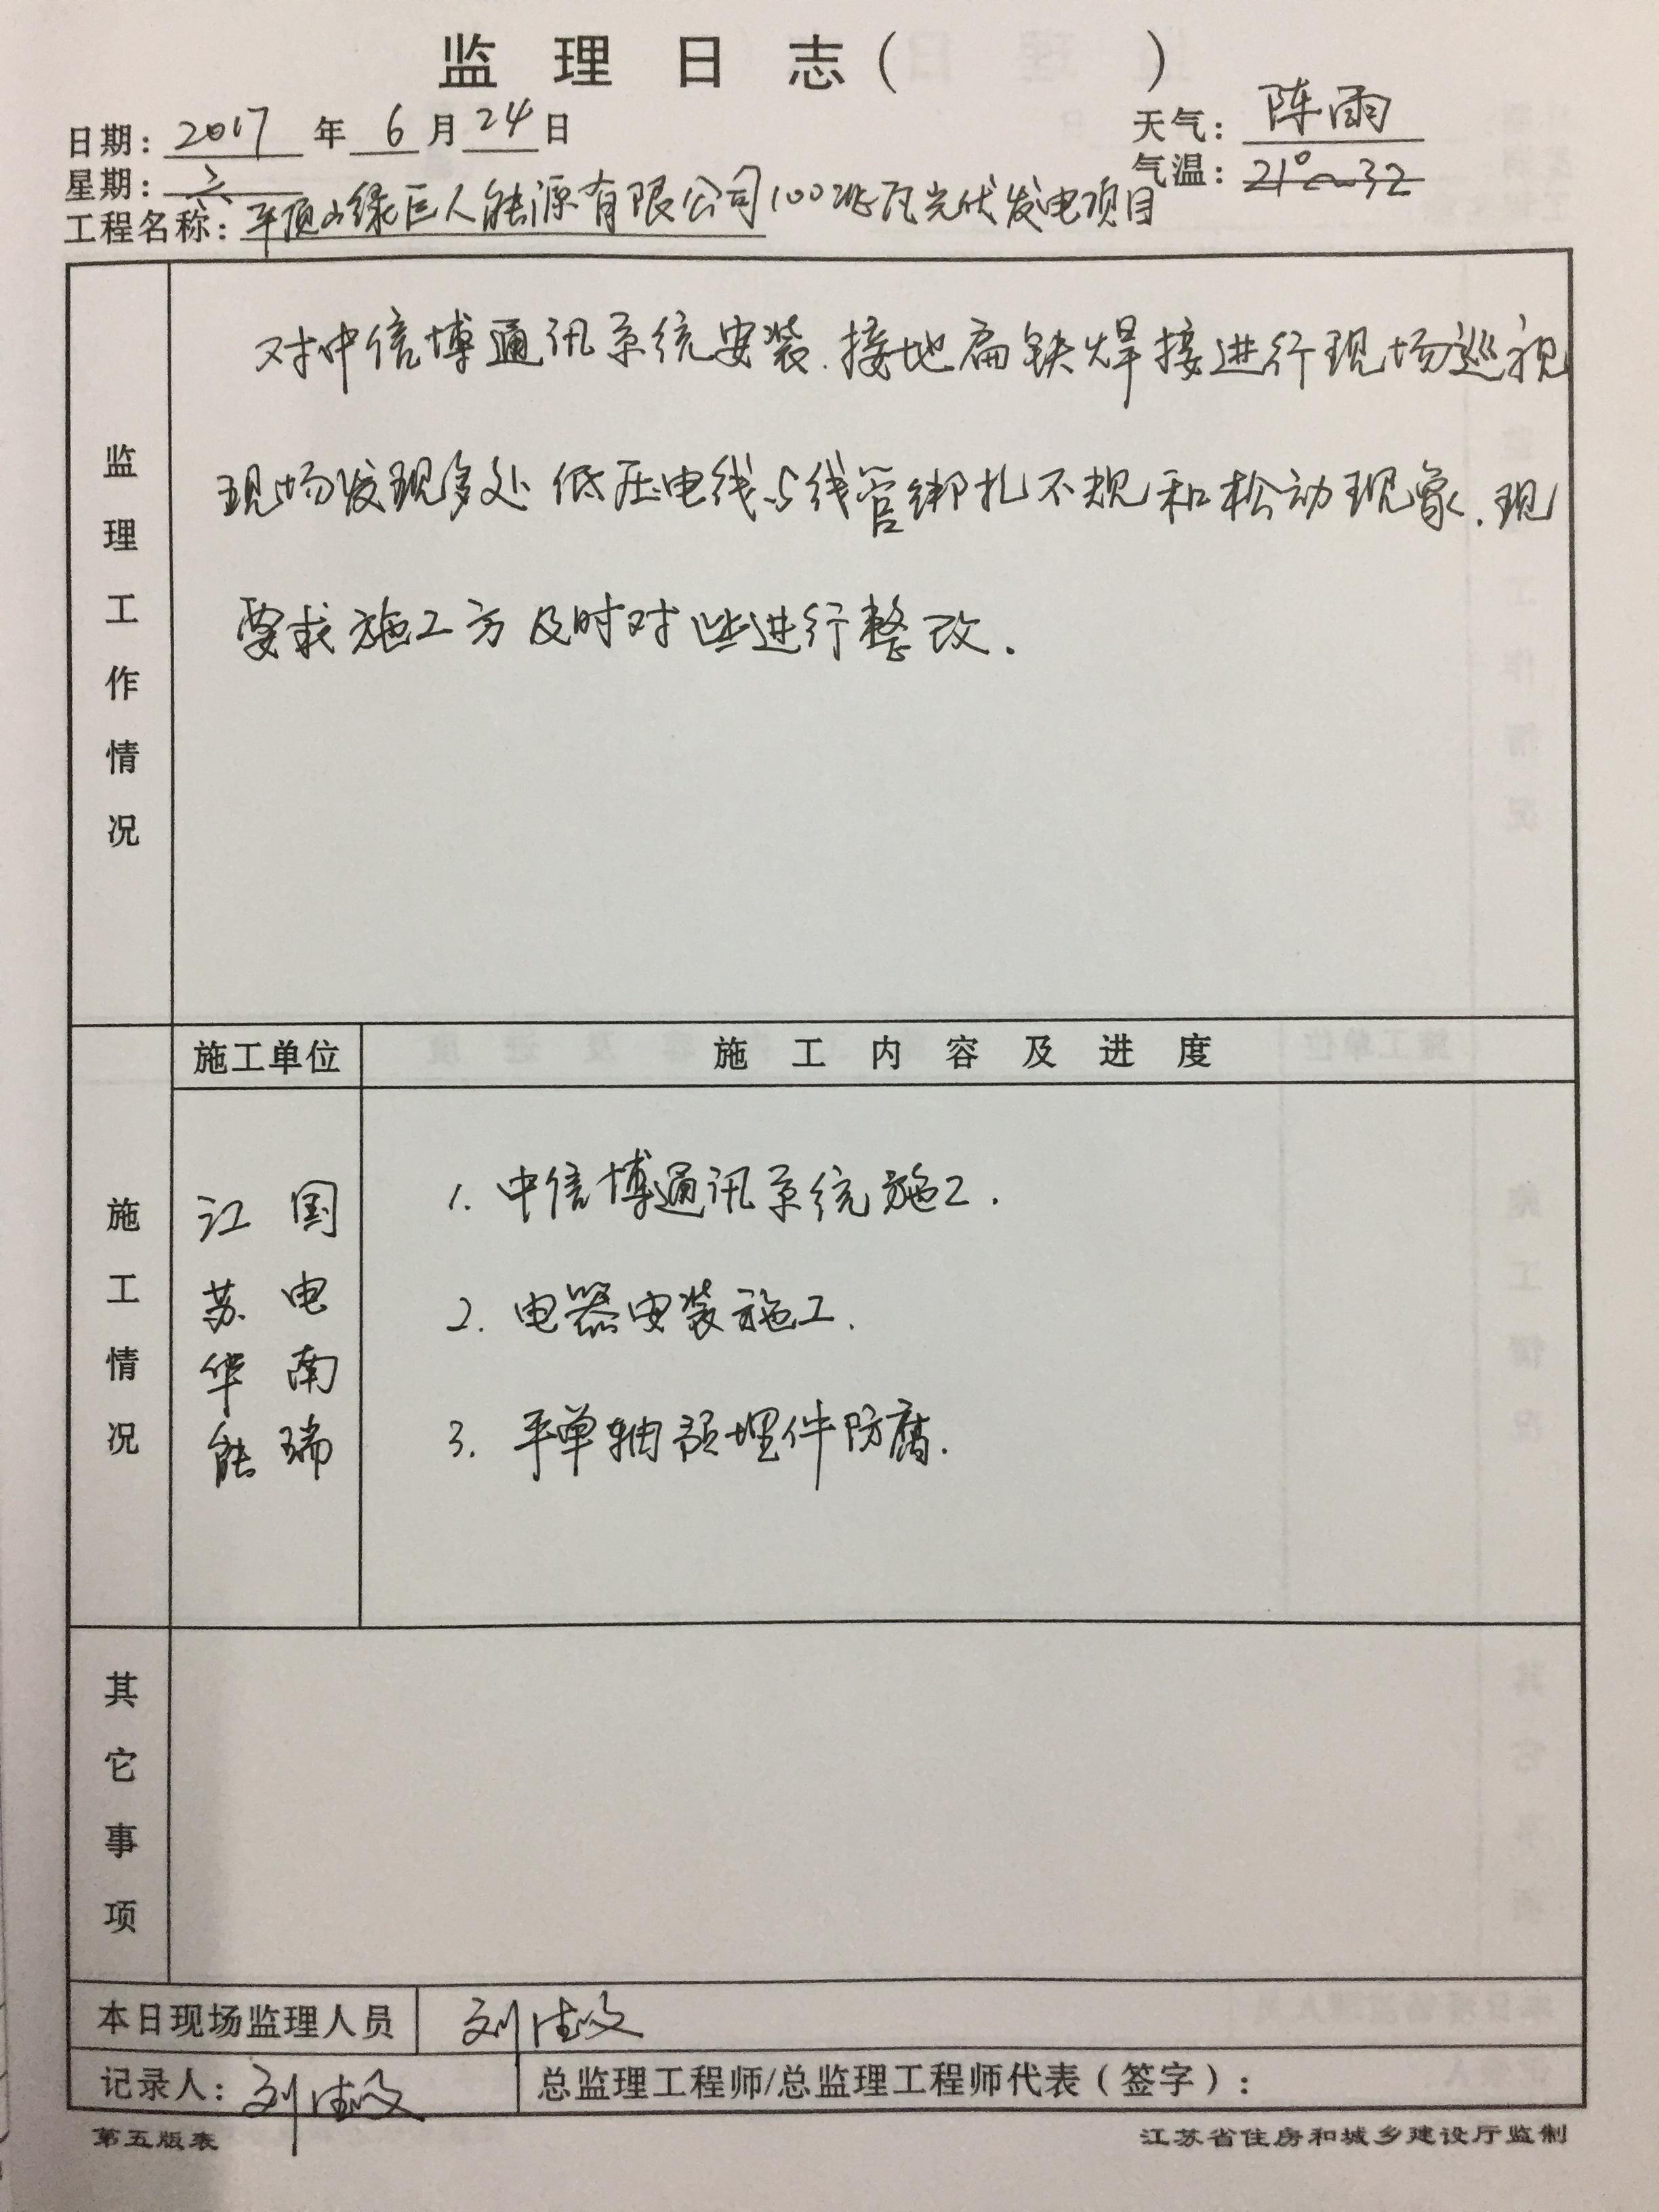 监理日志（ ）
日期：2017年6月24日
天气：陈雨
星期：六
气温：21°~32
工程名称：平顶山绿巨人能源有限公司100兆瓦光伏发电项目
监理工作情况
对中信博通讯系统安装.接地扁铁焊接进行现场巡视
现场发现多处低压电线与线管绑扎不规和松动现象.现
要求施工方及时对此进行整改.
施工单位
施工内容及进度
施工情况
江苏华能
国电南瑞
1.中信博通讯系统施工.
2.电器安装施工.
3.平单轴预埋件防腐.
其它事项
本日现场监理人员 刘
记录人：刘
总监理工程师/总监理工程师代表（签字）：
第五版表
江苏省住房和城乡建设厅监制